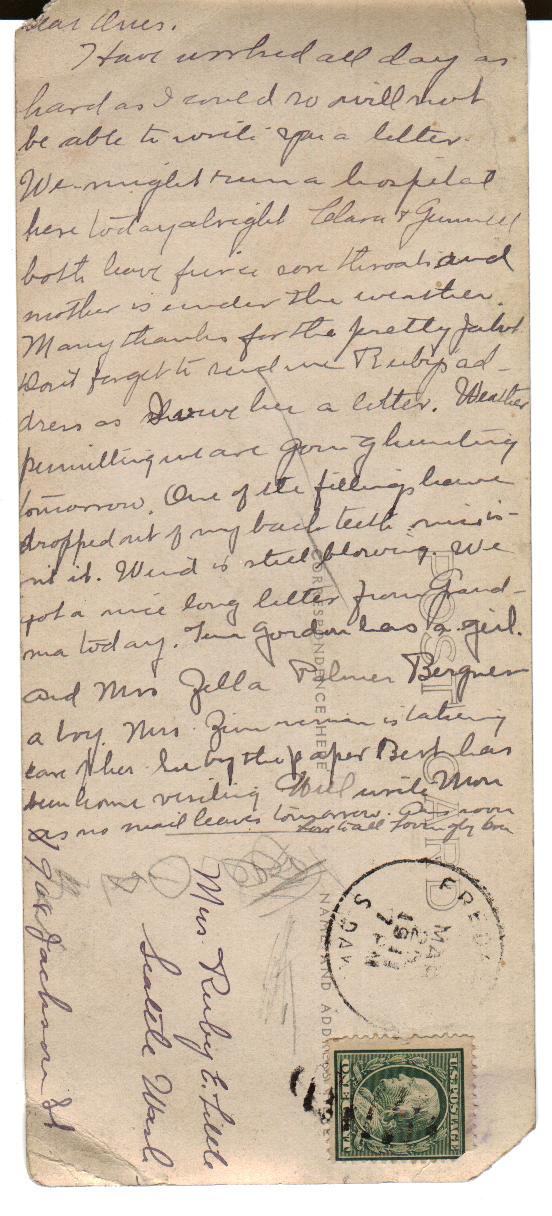 Dear Ones.
Have worked all day as
hard as I could so will not
be able to write you a letter.
We might run a hospital
here today alright Clara &
both have fierce sore throats and
mother is under the weather.
Many thanks for the pretty Jabot.
Don't forget to send me Ruby's ad-
dress as I owe her a letter. Weather
permitting we are going hunting
tomorrow. One of the fillings have
dropped out of my back teeth
it. Wind is still blowing. We
got a nice long letter from Grand-
ma today. Gordon has a girl.
and Mrs Zella Palmer
a boy. Mrs. Zimmerman is taking
care of her. See by the paper Bert has
been home visiting Will write Mon
as no mail leaves tomorrow.
POST CARD
CORRESPONDENCE HERE
NAME AND ADDRESS
FRED
MAR
7 PM
1911
U.S. POSTAGE
ONE CENT
Mrs. Ruby E. Little
Seattle Wash
Jackson St